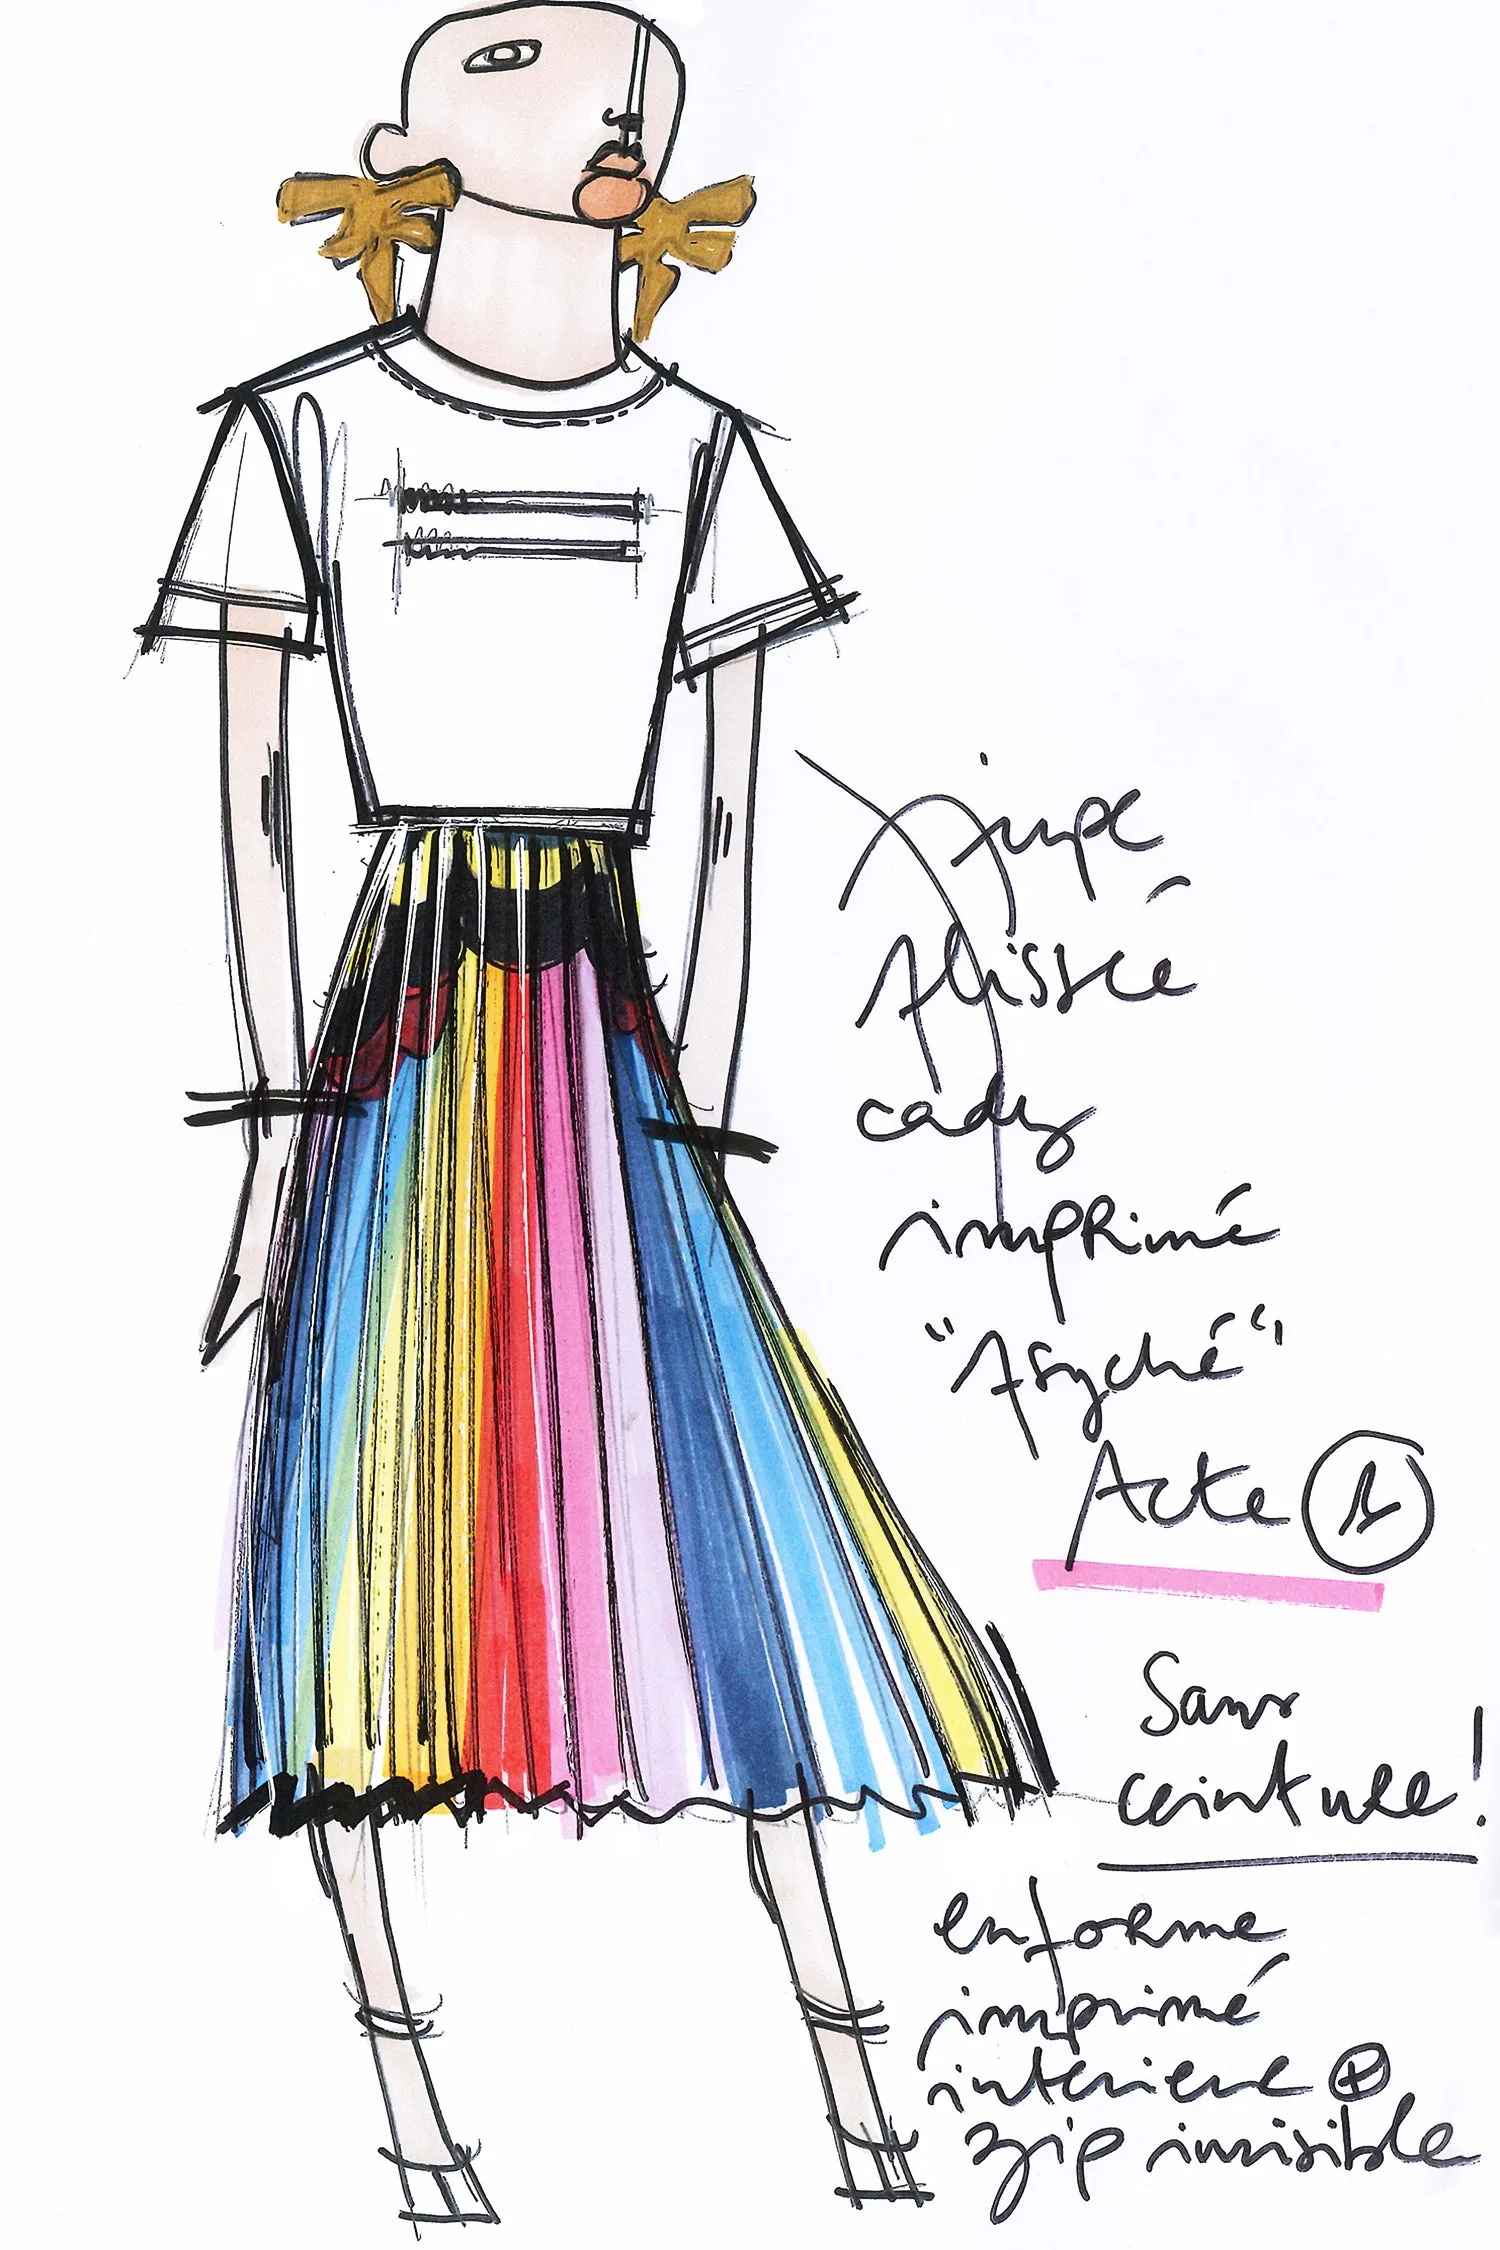 jupe
plissée
cady
imprimé
"Psyché"
Acte 1
Sans
ceinture!
enforme
imprimé
interieure +
zip invisible